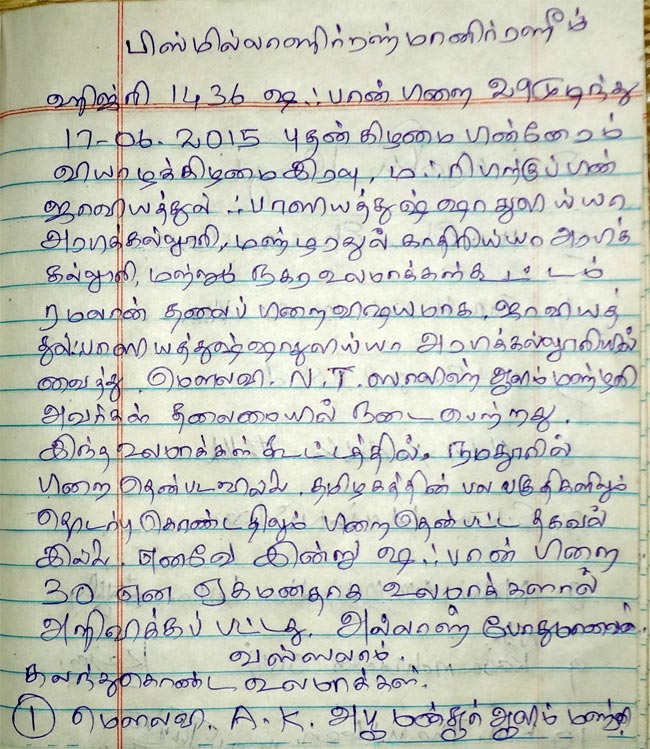 பிஸ்மில்லாஹிர்ரஹ்மானிர்ரஹீம்
ஹிஜ்ரி 1436 ஷஃபான் பிறை 29 முடிந்து
17-06-2015 புதன் கிழமை பின்னேரம்
வியாழக்கிழமை இரவு, மஃரிபுக்குப்பின்
ஜாவியத்துல் ஃபாஸியத்துஷ்ஷாதுலிய்யா
அரபிக்கல்லூரி, மஹ்ழரதுல் காதிரிய்யா அரபிக்
கல்லூரி, மற்றும் நகர உலமாக்கள் கூட்டம்
ரமலான் தலைப் பிறை விஷயமாக, ஜாவியத்
துல்ஃபாஸியத்துஷ்ஷாதுலிய்யா அரபிக்கல்லூரியில்
வைத்து மௌலவி. N.T. ஸாலிஹ் ஆலிம் மஹ்ழரி
அவர்கள் தலைமையில் நடைபெற்றது.
இந்த உலமாக்கள் கூட்டத்தில், நமதூரில்
பிறை தென்படவில்லை. தமிழகத்தின் பல பகுதிகளிலும்
தொடர்பு கொண்டதிலும் பிறை தென்பட்ட தகவல்
இல்லை. எனவே இன்று ஷஃபான் பிறை
30 என ஏகமனதாக உலமாக்களால்
அறிவிக்கப்பட்டது. அல்லாஹ் போதுமானவன்.
வஸ்ஸலாம்.
கலந்துகொண்ட உலமாக்கள்.
① மௌலவி. A.K. அபூ மன்சூர் ஆலிம் மஹ்ழரி